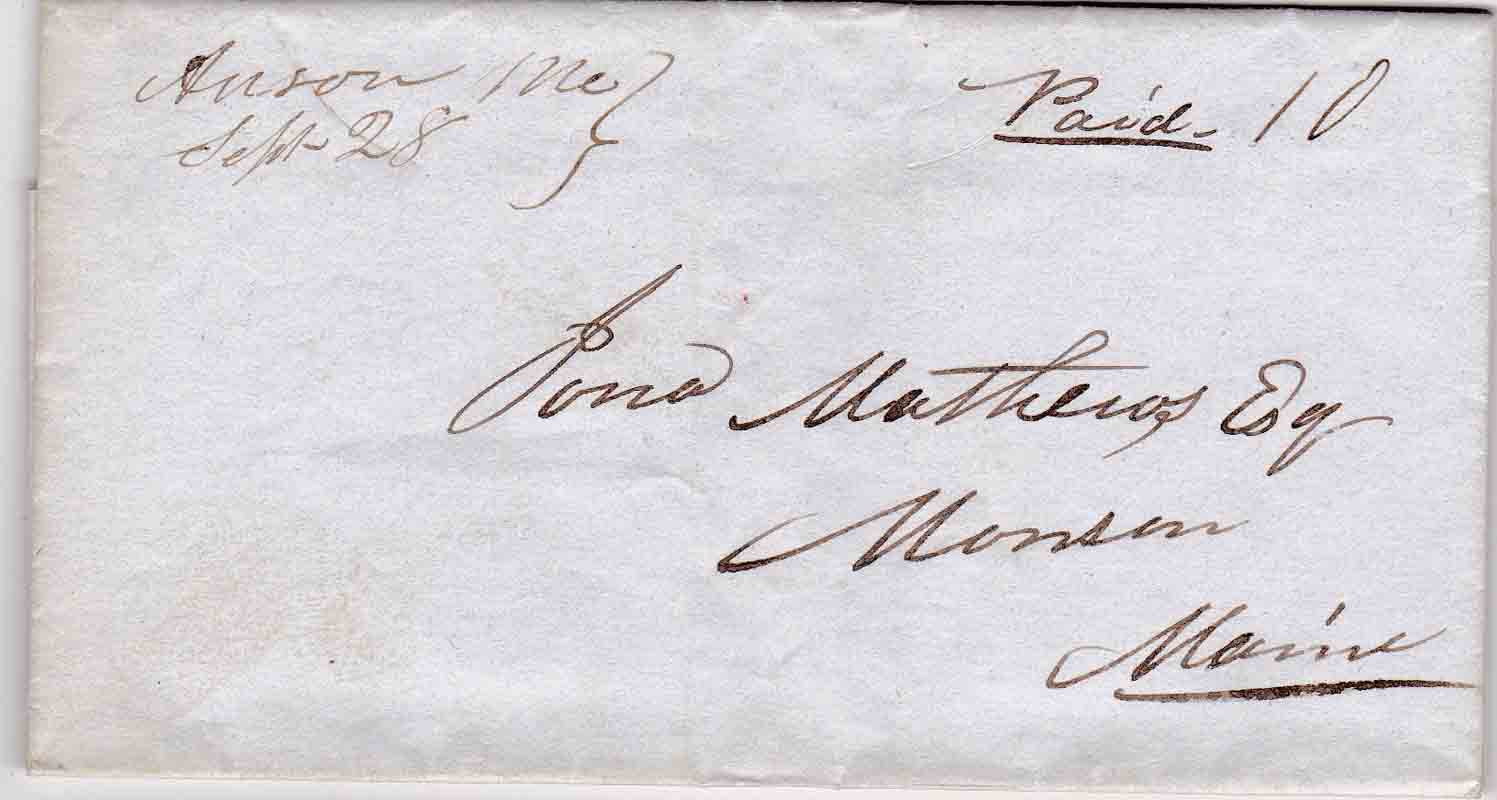 Anson Me
Sept 28
Paid 10
Jona Mathews Esq
Monson
Maine